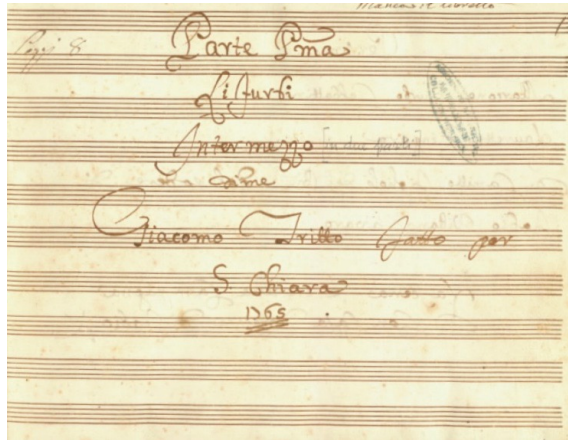 Manca il libretto
Pezzi 8
Parte Pma
Li furbi
Intermezzo [in due parti]
di me
Giacomo Tritto fatto per
S Chiara
1765